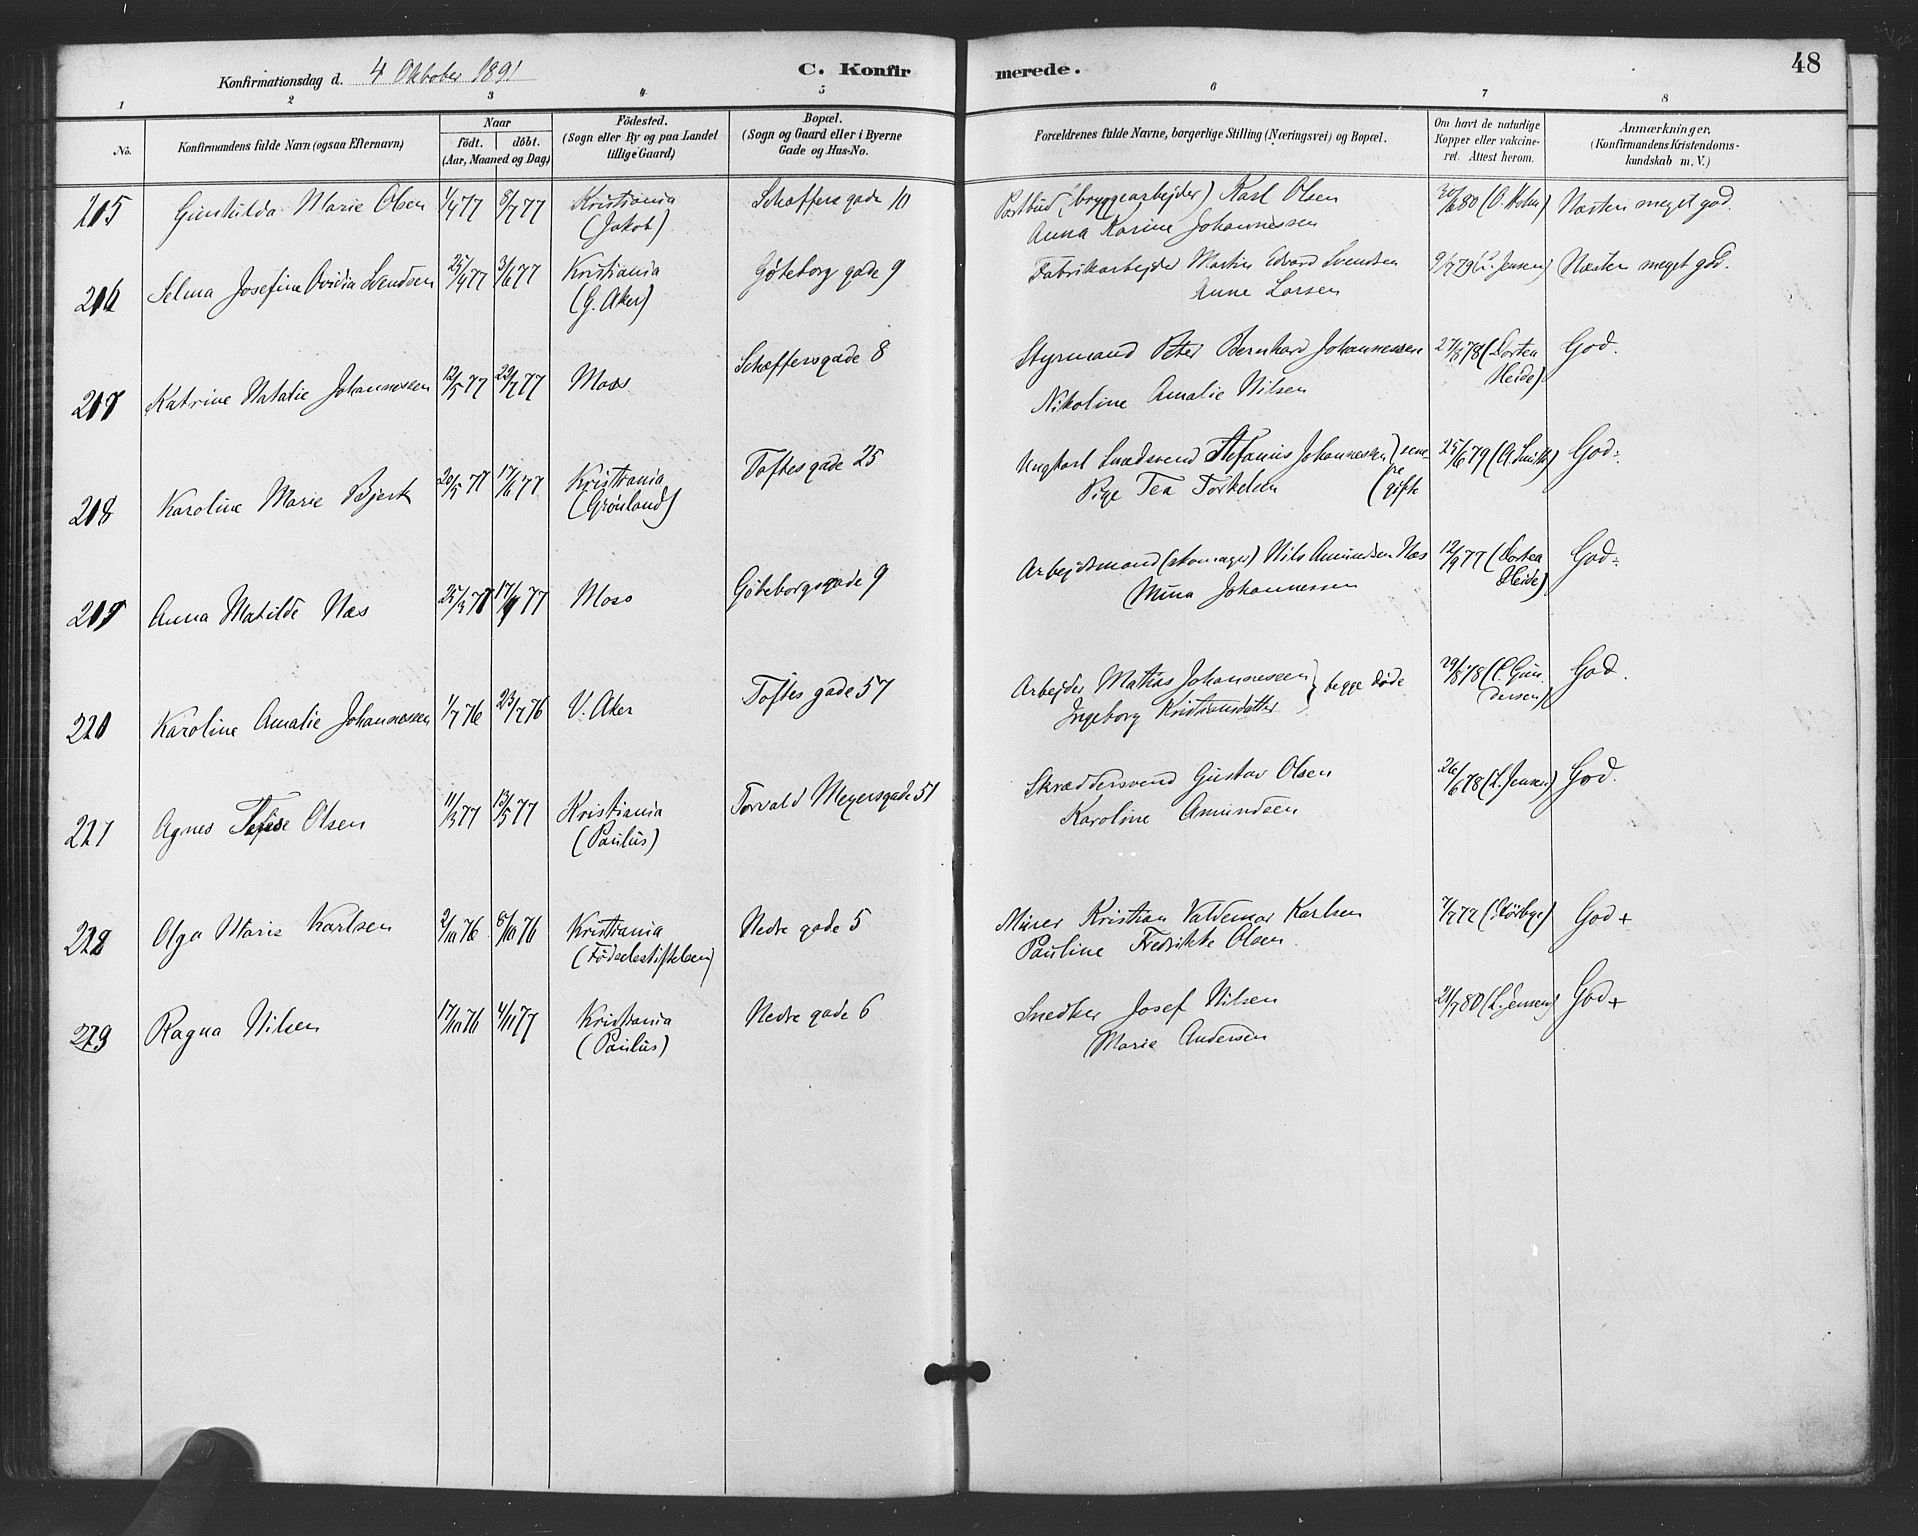 Konfirmationsdag d. 4 Oktober 1891
C. Konfir merede.
48
1 2 3 4 5 6 7 8
No.
Konfirmandens fulde Navn (ogsaa Efternavn)
Naar
födt. döbt.
(Aar, Maaned og Dag)
Födested.
(Sogn eller By og paa Landet
tillige Gaard)
Bopæl.
(Sogn og Gaard eller i Byerne
Gade og Hus-No.
Forældrenes fulde Navne, borgerlige Stilling (Næringsvei) og Bopæl.
Om havt de naturlige
Kopper eller vakcine-
ret. Attest herom.
Anmærkninger.
(Konfirmandens Kristendoms-
kundskab m. V.)
215 Gunhilda Marie Olsen 1/4 77 8/7 77 Kristiania Schæffersgade 10 Postbud (bryggearbejder) Karl Olsen 30/6 80 (O. Holm) Næsten meget god.
(Jakob) Anna Karine Johannessen
216 Selma Josefine Ovidia Svendsen 25/4 77 3/6 77 Kristiania Göteborggade 9 Fabrikarbejder Martin Edvard Svendsen 9/7 79 (L. Jensen) Næsten meget god.
(G. Aker) Anne Larsen
217 Katrine Natalie Johannessen 12/5 77 29/7 77 Moss Schæffersgade 8 Styrmand Peter Bernhard Johannessen 27/8 78 (Dortea God.
Nikoline Amalie Nilsen Heide)
218 Karoline Marie Bjerk 20/5 77 17/6 77 Kristiania Toftesgade 25 Ungkarl Snedsvend Stefanus Johannessen) sene- 25/6 79 (A. Smith) God-.
(Grönland) Pige Tea Torkelsen (re gifte
219 Anna Matilde Næs 25/3 77 17/4 77 Moss Göteborgsgade 9 Arbejdsmand (skomager) Nils Amundsen Næs 12/9 77 (Dortea God-.
Mina Johannessen Heide)
220 Karoline Amalie Johannessen 1/7 76 23/7 76 V. Aker Toftesgade 57 Arbejder Mathias Johannessen } begge döde 29/8 78 (C. Gun God.
Ingeborg Kristiansdatter dersen)
227 Agnes Olsen 11/3 77 13/5 77 Kristiania Torvald Meyersgade 51 Skræddersvend Gustav Olsen 26/6 78 (L. Jensen) God.
(Paulus) Karoline Amundsen
228 Olga Marie Karlsen 2/10 76 8/10 76 Kristiania Nedre gade 5 Murer Kristian Valdemar Karlsen 7/7 72 (Störbye) God +
(Födselsstiftelsen) Pauline Fredrikke Olsen
229 Ragna Nilsen 17/10 76 4/11 77 Kristiania Nedre gade 6 Snedker Josef Nilsen 21/7 80 (L. Jensen) God +
(Paulus) Marie Andersen